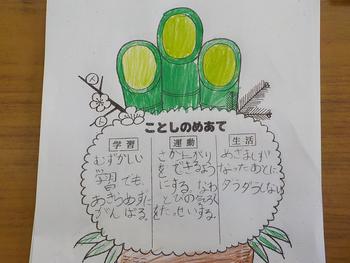 ことしのめあて
学習
むずかしい
学習でも、
あきらめずに
がんばる。
運動
さか上がり
をできるよう
にする。なわ
とびの気ろく
をたっせいする。
生活
めざましが
なったあとに
ダラダラしない